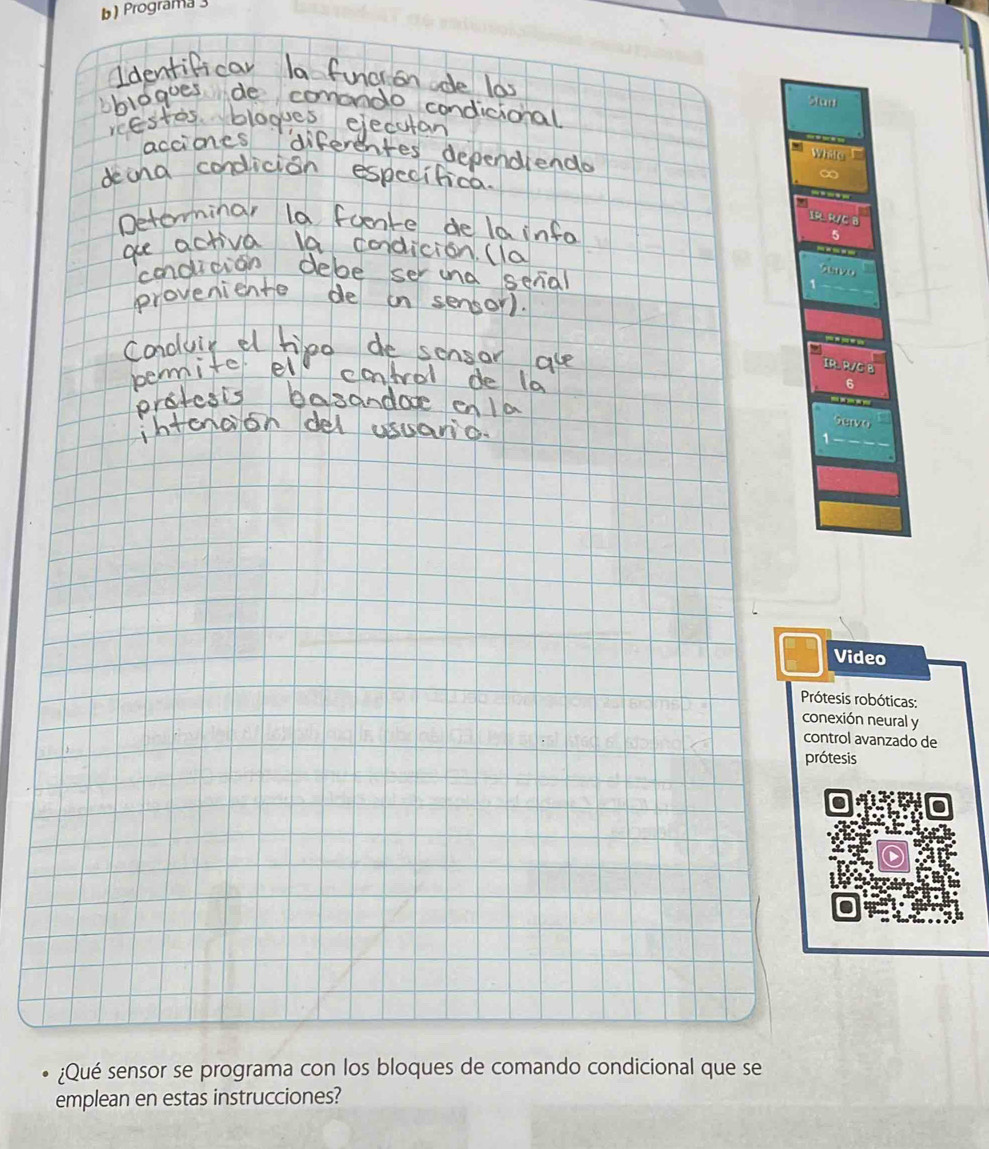 b) Programa 3
Identificar la función de los
bloques de comando condicional.
Estos bloques ejecutan
acciones diferentes dependiendo
de una condición específica.
Determinar la fuente de la info
que activa la condición. (la
condición debe ser una señal
proveniente de un sensor).
Concluir el tipo de sensor que
permite el control de la
prótesis basandose en la
intención del usuario.
Start
While
∞
IR R/C B
5
Servo
1 _ _ _ _
IR R/C B
6
Servo
1 _ _ _ _
Video
Prótesis robóticas:
conexión neural y
control avanzado de
prótesis
• ¿Qué sensor se programa con los bloques de comando condicional que se
emplean en estas instrucciones?